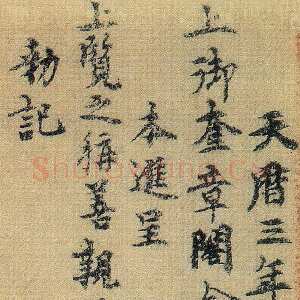 天曆三年
上御奎章閣
本進呈
上覽之稱善親
勑記